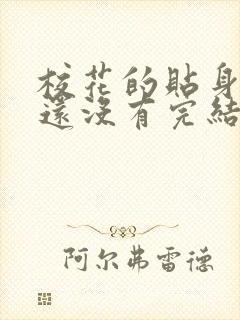 校花的貼身
還沒有完結
阿尔弗雷德